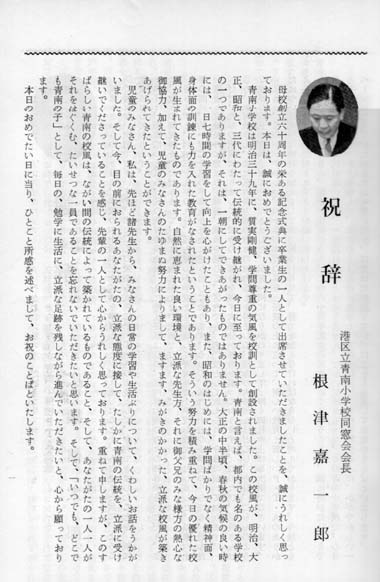 祝辞
港区立青南小学校同窓会会長
根津嘉一郎
母校創立六十周年の栄ある記念式典に卒業生の一人として出席させていただきましたことを、誠にうれしく思っ
ております。本日は、誠におめでとうございました。
青南小学校は明治三十九年に、質実剛健、学問尊重の気風を校訓として創設されました。この校風が、明治、大
正、昭和と、三代にわたって伝統的に受け継がれ、今日に至っております。青南と言えば、都内でも名のある学校
の一つでありますが、それは、一朝にしてできあがったものではありません。大正の中半頃、春秋の気候の良い時
には、一日七時間の学習をして向上を心がけたこともあり、また、昭和のはじめには、学問ばかりでなく精神面、
身体面の訓練にも力を入れた教育がなされたということであります。そういう努力を積み重ねて、今日の優れた校
風が生まれてきたものであります。自然に恵まれた良い環境と、立派な先生方、それに御父兄のみな様方の熱心な
御協力、加えて、児童のみなさんのたゆまぬ努力によりまして、ますます、みがきのかかった、立派な校風が築き
あげられてきたということができます。
児童のみなさん、私は、先ほど諸先生から、みなさんの日常の学習や生活ぶりについて、くわしいお話をうかが
いました。そして今、目の前におられるあなたがたの、立派な態度に接して、たしかに青南の伝統を、立派に受け
継いでくださっていることを感じ、先輩の一人として心からうれしく思っております。重ねて申しますが、このす
ばらしい青南の校風は、ながい間の伝統によって築かれているものであること、そして、あなたがたの一人一人が
それをはぐくむ、たいせつな一員であることを忘れないでいただきたいと思います。そして、「いつでも、どこで
も青南の子」として、毎日の、勉学に生活に、立派な足跡を残しながら進んでいただきたいと、心から願っており
ます。
本日のおめでたい日に当り、ひとこと所感を述べまして、お祝のことばといたします。